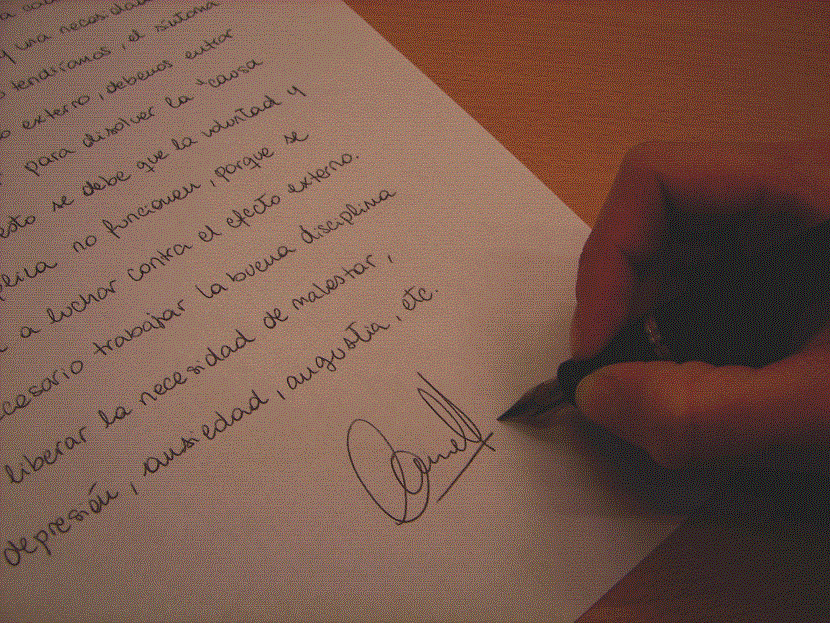 y una necesidad
tendríamos, el síntoma
externo, debemos entrar
para disolver la "causa
esto se debe que la voluntad y
no funcionen, porque se
a luchar contra el efecto externo.
trabajar la buena disciplina
liberar la necesidad de malestar,
depresión, ansiedad, angustia, etc.